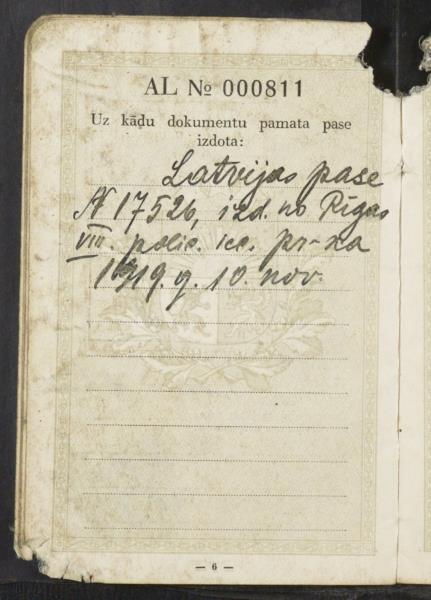 AL № 000811
Uz kāḑu dokumentu pamata pase
izdota:
Latvijas pase
N 17526, izd. no Rīgas
VIII. polic. iec. pr-ka
1919. g. 10. nov.
— 6 —